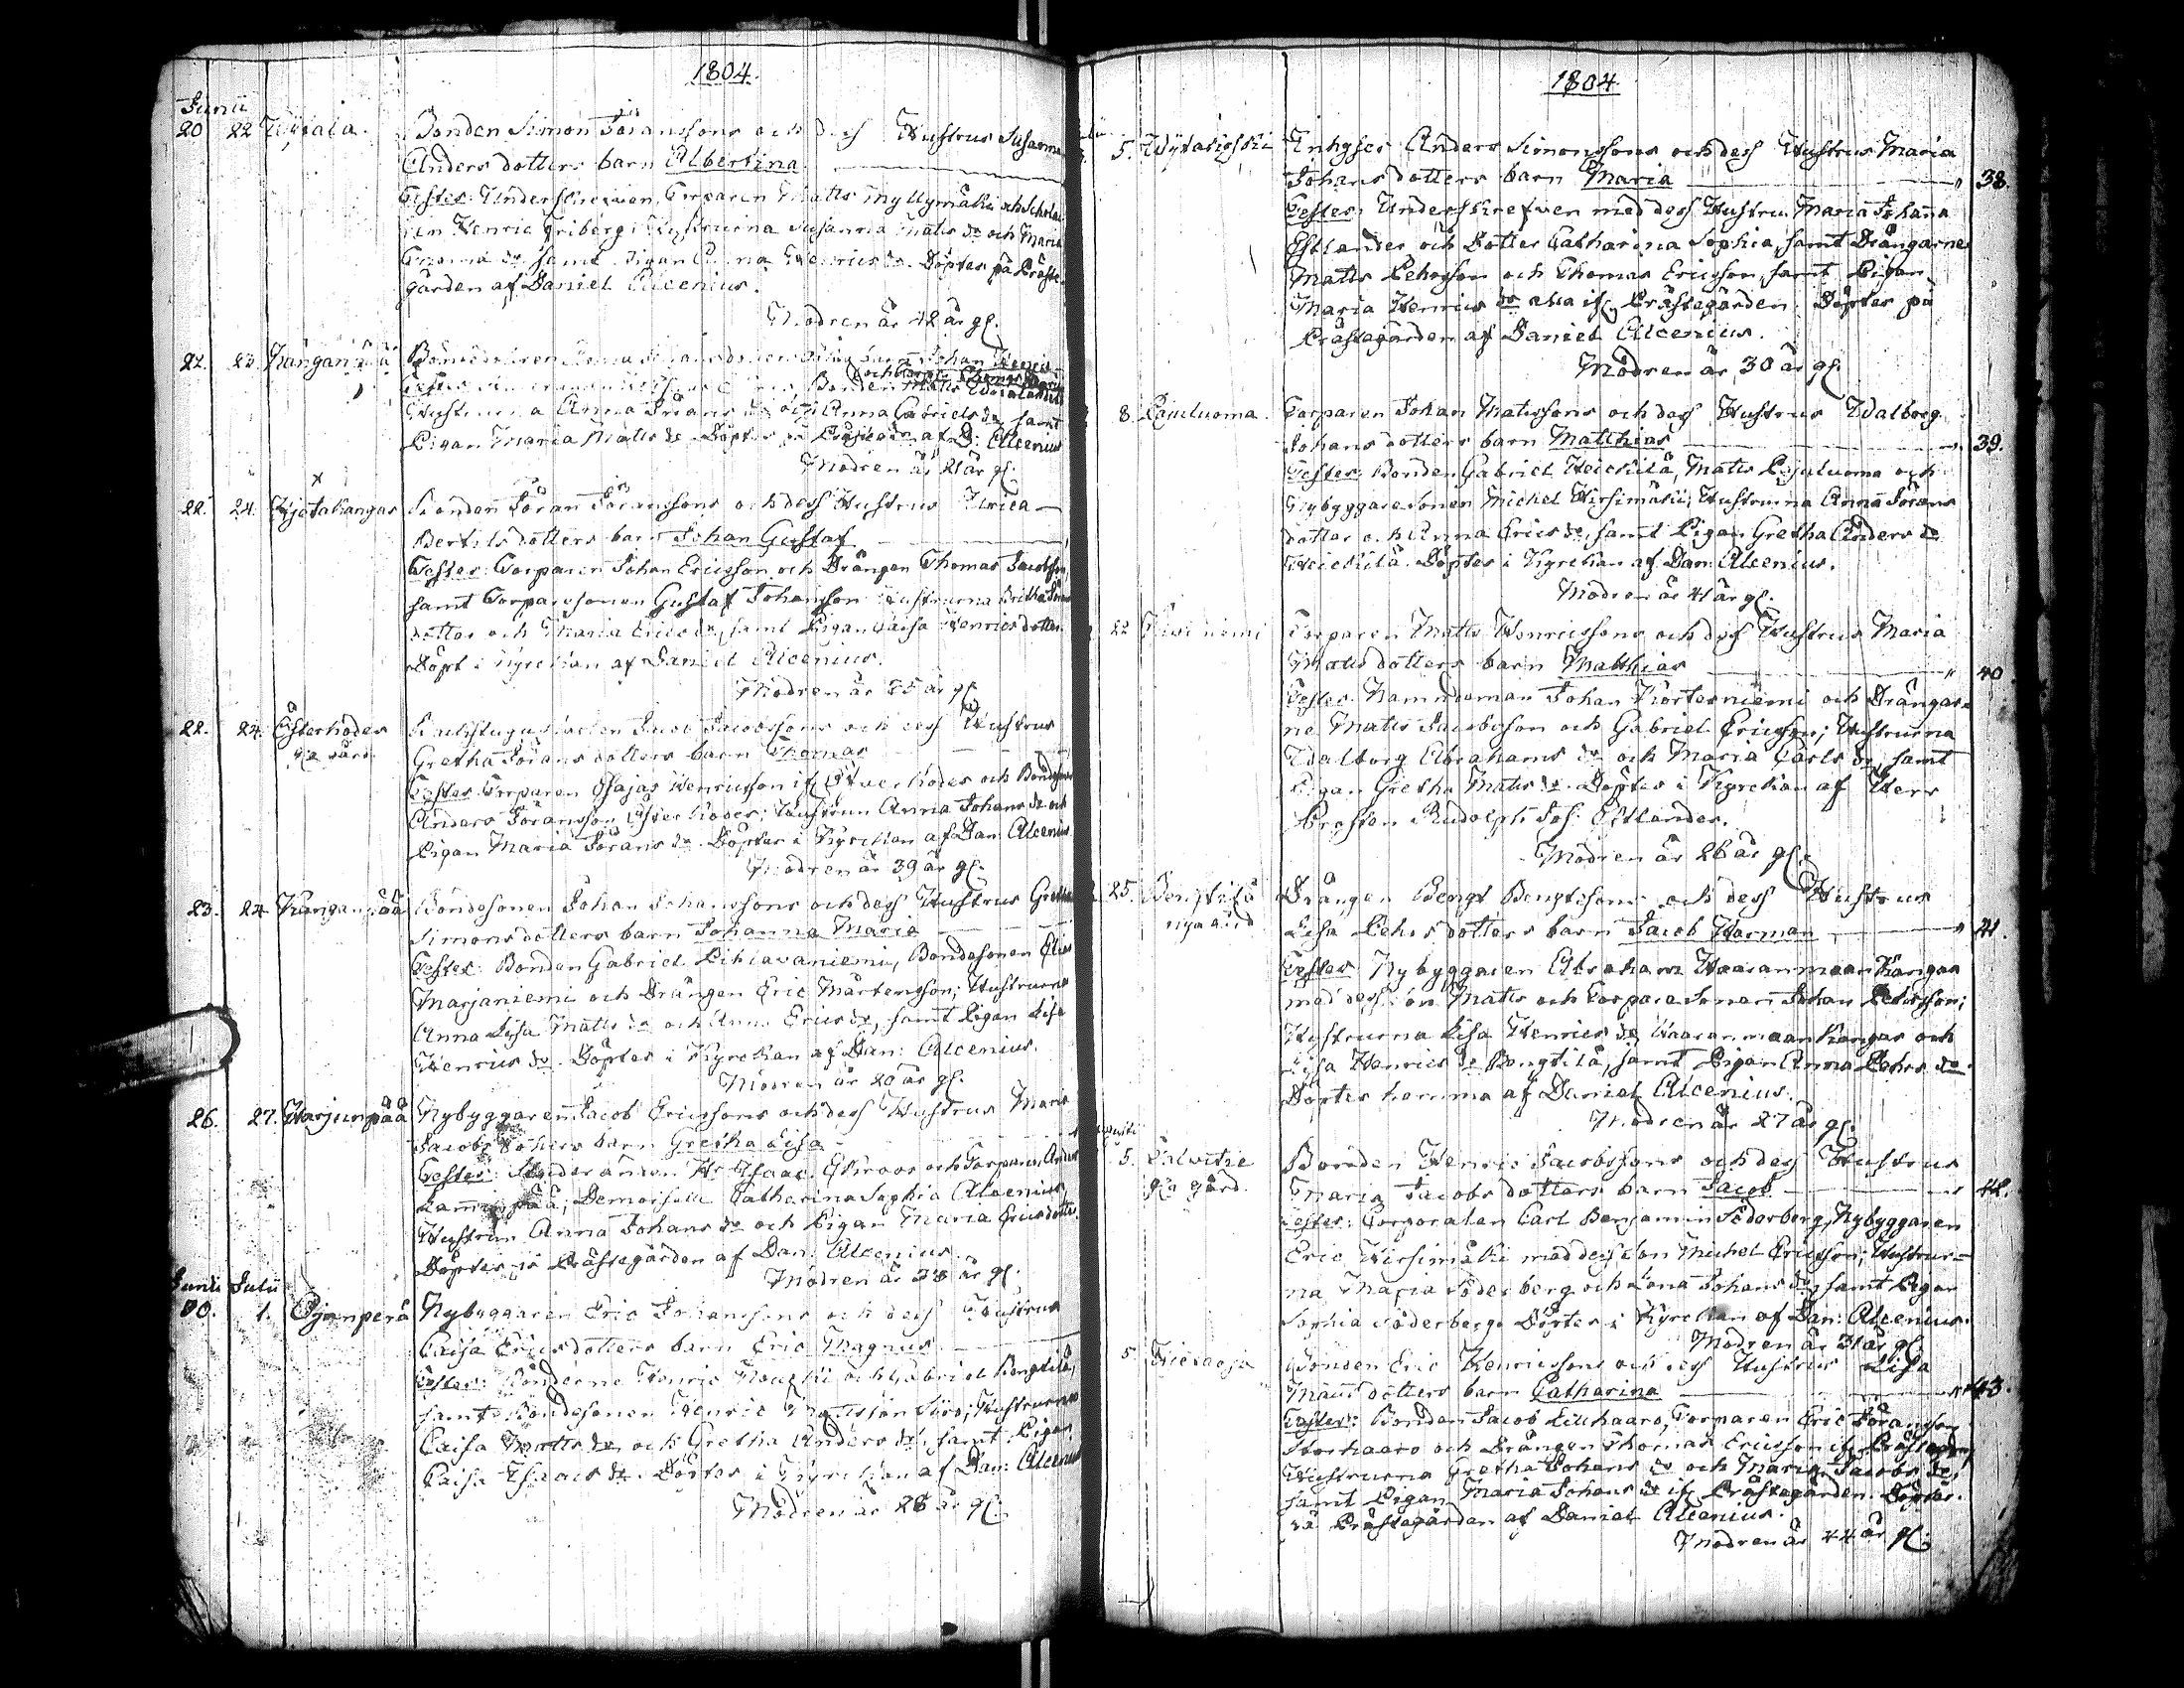 1804.
Junii
20 22 Wytala. Bonden Simon Göranssons och dess Hustrus Susanna
Anders dotters barn Albertina
Testes: Underskrefwen, Torparen Matts Myllymäki och
Henric Friberg; Hustrurna Susanna Matts dr och Maria
dr samt Pigan Henrics dr. Döptes på Präste-
gården af Daniel Alcenius.
Modren är 42 år gl.
22. 23. Kanganpää barn Johan Henric
och
Testes Bonden Matts
Hustrurna Anna Görans dr och Anna Gabriels dr samt
Pigan Maria Matts dr. Döptes på Prästegården af D: Alcenius
Modren är 21 år gl.
x
22. 24. Hjötakangas Bonden Göran Göranssons och dess Hustrus Ulrica
Bertils dotters barn Johan Gustaf
Testes: Torparen Johan Ericsson och Drängen Thomas Jacobsson,
samt Torparesonen Gustaf Johansson Hustrurna Britha Görans
dotter och Maria Erics dr, samt Pigan Caisa Henrics dotter
Döpt i Kyrckan af Daniel Alcenius.
Modren är 25 år gl.
22. 24. Österhodes Jacob Jacobssons och dess Hustrus
gård Gretha Görans dotters barn Thomas
Testes Torparen Esajas Henricsson if. Öfver Kodes och Bondesonen
Anders Göransson Öster Kodes; Hustrun Anna Johans dr och
Pigan Maria Görans dr. Döptes i Kyrckan af Dan: Alcenius
Modren är 39 år gl.
23. 24 Kanganpää Bondesonen Johan Johanssons och dess Hustrus Gretha
Simons dotters barn Johanna Maria
Testes: Bonden Gabriel Pihlavaniemi, Bondesonen Elias
Marjaniemi och Drängen Eric Mårtensson; Hustrurna
Anna Lisa Matts dr och Anna Erics dr, samt Pigan Lisa
Henrics dr. Döptes i Kyrckan af Dan: Alcenius.
Modren är 20 år gl.
26. 27. Harjunpää Nybyggaren Jacob Ericssons och dess Hustrus Maria
Jacobs dotters barn Gretha Lisa
Testes: Hr Isaac och Torparen Anders
Lammинpää; Demoiselle Catharina Sophia Alcenius,
Hustrun Anna Johans dr och Pigan Maria Ericsdotter
Döptes i Prästegården af Dan: Alcenius.
Modren är 38 år gl.
Junii Julii
30. 1. Ojanperä Nybyggaren Eric Johanssons och dess Hustrus
Caisa Erics dotters barn Eric Magnus
Testes: Bönderne Henric och Gabriel Bengtilä,
samt Bondesonen Henric Mattsson Hustrurna
Caisa Matts dr och Gretha Anders dr, samt Pigan
Caisa Isaacs dr. Döptes i Kyrckan af Dan: Alcenius
Modren är 28 år gl.
1804.
5. Inhyses Anders Simonssons och dess Hustrus Maria
Johans dotters barn Maria 38.
Testes: Underskrefwen med dess Hustru Maria Johanna
Estlander och Dotter Catharina Sophia, samt Drängarne
Matts Pehrsson och Thomas Ericsson, samt Pigan
Maria Henrics dr alla if. Prästegården. Döptes på
Prästegården af Daniel Alcenius.
Modren är 30 år gl.
8 Pajuluoma. Torparen Johan Matssons och dess Hustrus Walborg
Johans dotters barn Matthias 39.
Testes: Bonden Gabriel Heickilä, Matts Pajuluoma och
Nybyggaresonen Michel Hirsimäki, Hustrurna Anna Görans
dotter och Anna Erics dr, samt Pigan Gretha Anders dr
Heickilä. Döptes i Kyrckan af Dan: Alcenius.
Modren är 41 år gl.
22 Torparen Matts Henricssons och dess Hustrus Maria
Matts dotters barn Matthias 40
Testes: Nämndeman Johan Kortesniemi och Drängar-
ne Matts Jacobsson och Gabriel Ericsson; Hustrurna
Walborg Abrahams dr och Maria Carls dr, samt
Pigan Gretha Matts dr. Döptes i Kyrckan af Herr
Prosten Rudolph Joh: Estlander.
Modren är 26 år gl.
25. Bengtilä Drängen Bengt Bengtssons och dess Hustrus
nya gård Lisa Pehrs dotters barn Jacob Herman 41.
Testes: Nybyggaren Abraham Waaranmaan Kangas
med dess son Matts och Torparesonen Johan Pehrsson;
Hustrurna Lisa Henrics dr Waaranmaankangas och
Lisa Henrics dr Bengtilä, samt Pigan Anna Pehrs dr.
Döptes hemma af Daniel Alcenius.
Modren är 27 år gl.
5. Salvitie Bonden Henric Jacobssons och dess Hustrus
gård. Maria Jacobs dotters barn Jacob 42.
Testes: Corporalen Carl Benjamin Söderberg, Nybyggaren
Eric Hirsimäki med dess son Michel Ericsson; Hustrur-
na Maria Söderberg och Lena Johans dr, samt Pigan
Sophia Söderberg. Döptes i Kyrckan af Dan: Alcenius.
Modren är 31 år gl.
5 Bonden Eric Henricssons och dess Hustrus Lisa
Matts dotters barn Catharina 43.
Testes: Bonden Jacob Lillhaaro, Torparen Eric Göransson
Storhaaro och Drängen Thomas Ericsson if. Prästegården,
Hustrurna Gretha Johans dr och Maria Jacobs dr,
samt Pigan Maria Johans dr if. Prästegården. Döptes
på Prästegården af Daniel Alcenius.
Modren är 44 år gl.